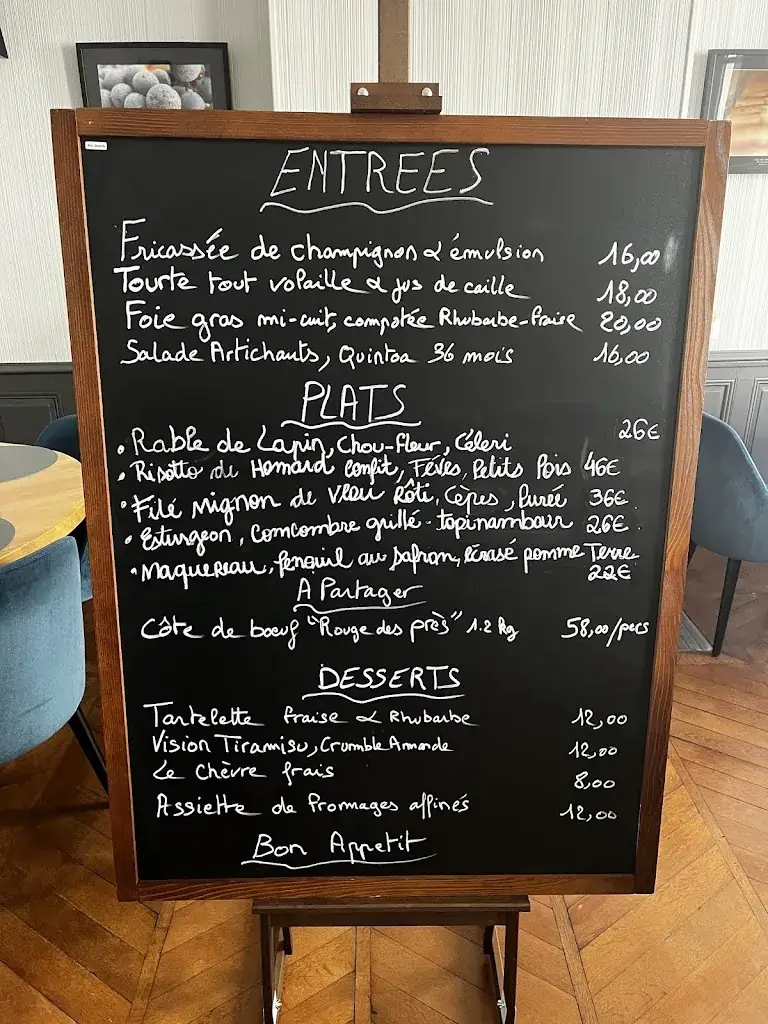 ENTREES
Fricassée de champignon & émulsion 16,00
Tourte tout volaille & jus de caille 18,00
Foie gras mi-cuit, compotée Rhubarbe-fraise 20,00
Salade Artichauts, Quintoa 36 mois 16,00
PLATS
• Rable de Lapin, Chou-fleur, Céleri 26€
• Risotto de Homard confit, Fèves, Petits Pois 46€
• Filé mignon de veau Rôti, Cèpes, Purée 36€
• Esturgeon, Comcombre grillé - topinambour 26€
• Maquereau, fenouil au safran, écrasé pomme Terre 22€
A Partager
Côte de boeuf "Rouge des près" 1.2 kg 58,00/pers
DESSERTS
Tartelette fraise & Rhubarbe 12,00
Vision Tiramisu, Crumble Amande 12,00
Le Chèvre frais 8,00
Assiette de fromages affinés 12,00
Bon Appetit